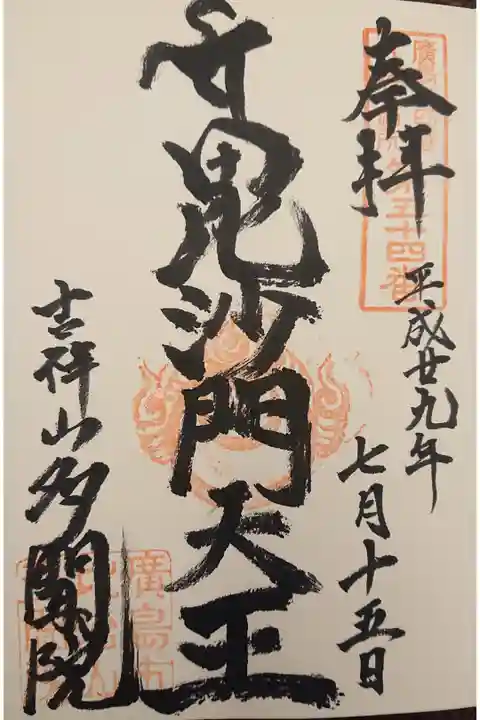 奉拝
平成廿九年
七月十五日
毘沙門天王
吉祥山多聞院
第五十四番
廣島市